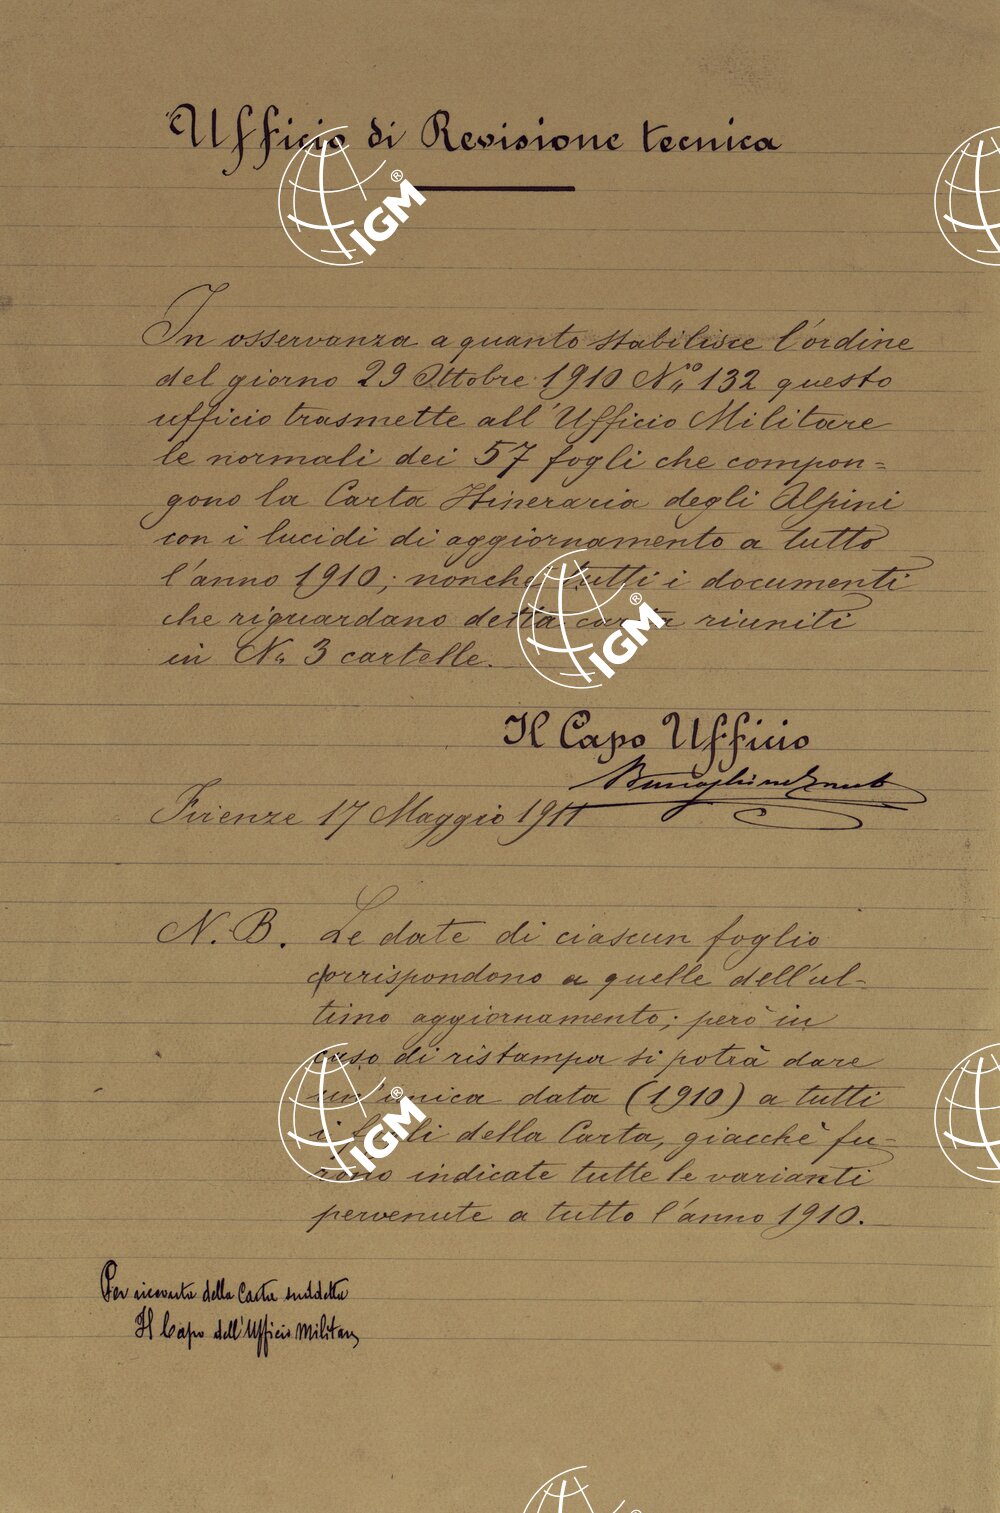 Ufficio di Revisione tecnica
In osservanza a quanto stabilisce l'ordine
del giorno 29 Ottobre 1910 Nº 132 questo
ufficio trasmette all'Ufficio Militare
le normali dei 57 fogli che compon=
gono la Carta Itineraria degli Alpini
con i lucidi di aggiornamento a tutto
l'anno 1910; nonchè tutti i documenti
che riguardano detta carta riuniti
in Nº 3 cartelle.
Il Capo Ufficio
Firenze 17 Maggio 1911
N.B. Le date di ciascun foglio
corrispondono a quelle dell'ul-
timo aggiornamento; però in
caso di ristampa si potrà dare
un'unica data (1910) a tutti
i fogli della Carta, giacchè fu-
rono indicate tutte le varianti
pervenute a tutto l'anno 1910.
Per ricevuta della Carta suddetta
Il Capo dell'Ufficio Militare
IGM®
IGM®
IGM®